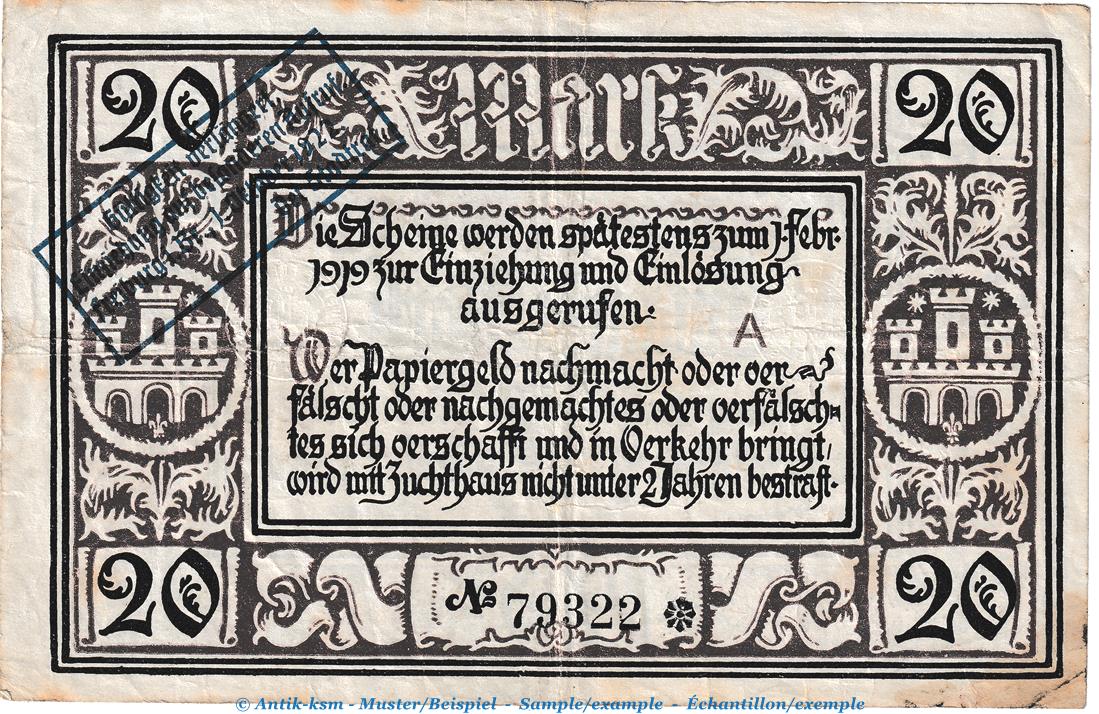 20 Mark 20
Gültigkeit verlängert
Freiburg i. Br. 1. Oktober 192
Der Stadtrat
Die Scheine werden spätestens zum 1. Febr.
1919 zur Einziehung und Einlösung
ausgerufen.
A
Wer Papiergeld nachmacht oder ver-
fälscht oder nachgemachtes oder verfälsch-
tes sich verschafft und in Verkehr bringt,
wird mit Zuchthaus nicht unter 2 Jahren bestraft.
20 No 79322 20
© Antik-ksm - Muster/Beispiel - Sample/example - Échantillon/exemple